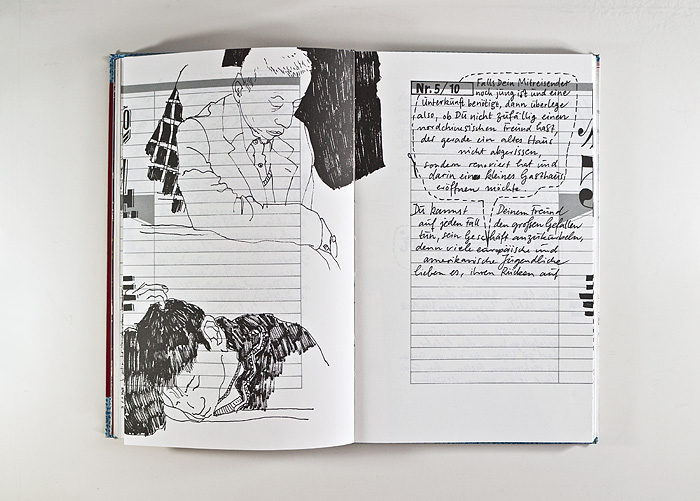 Nr. 5/10
Falls Dein Mitreisender
noch jung ist und eine
Unterkunft benötigt, dann überlege
also, ob Du nicht zufällig einen
nordchinesischen Freund hast,
der gerade ein altes Haus
nicht abgerissen,
sondern renoviert hat und
darin ein kleines Gasthaus
eröffnen möchte.
Du kannst Deinem Freund
auf jeden Fall den großen Gefallen
tun, sein Geschäft anzukurbeln,
denn viele europäische und
amerikanische Jugendliche
lieben es, ihren Rücken auf